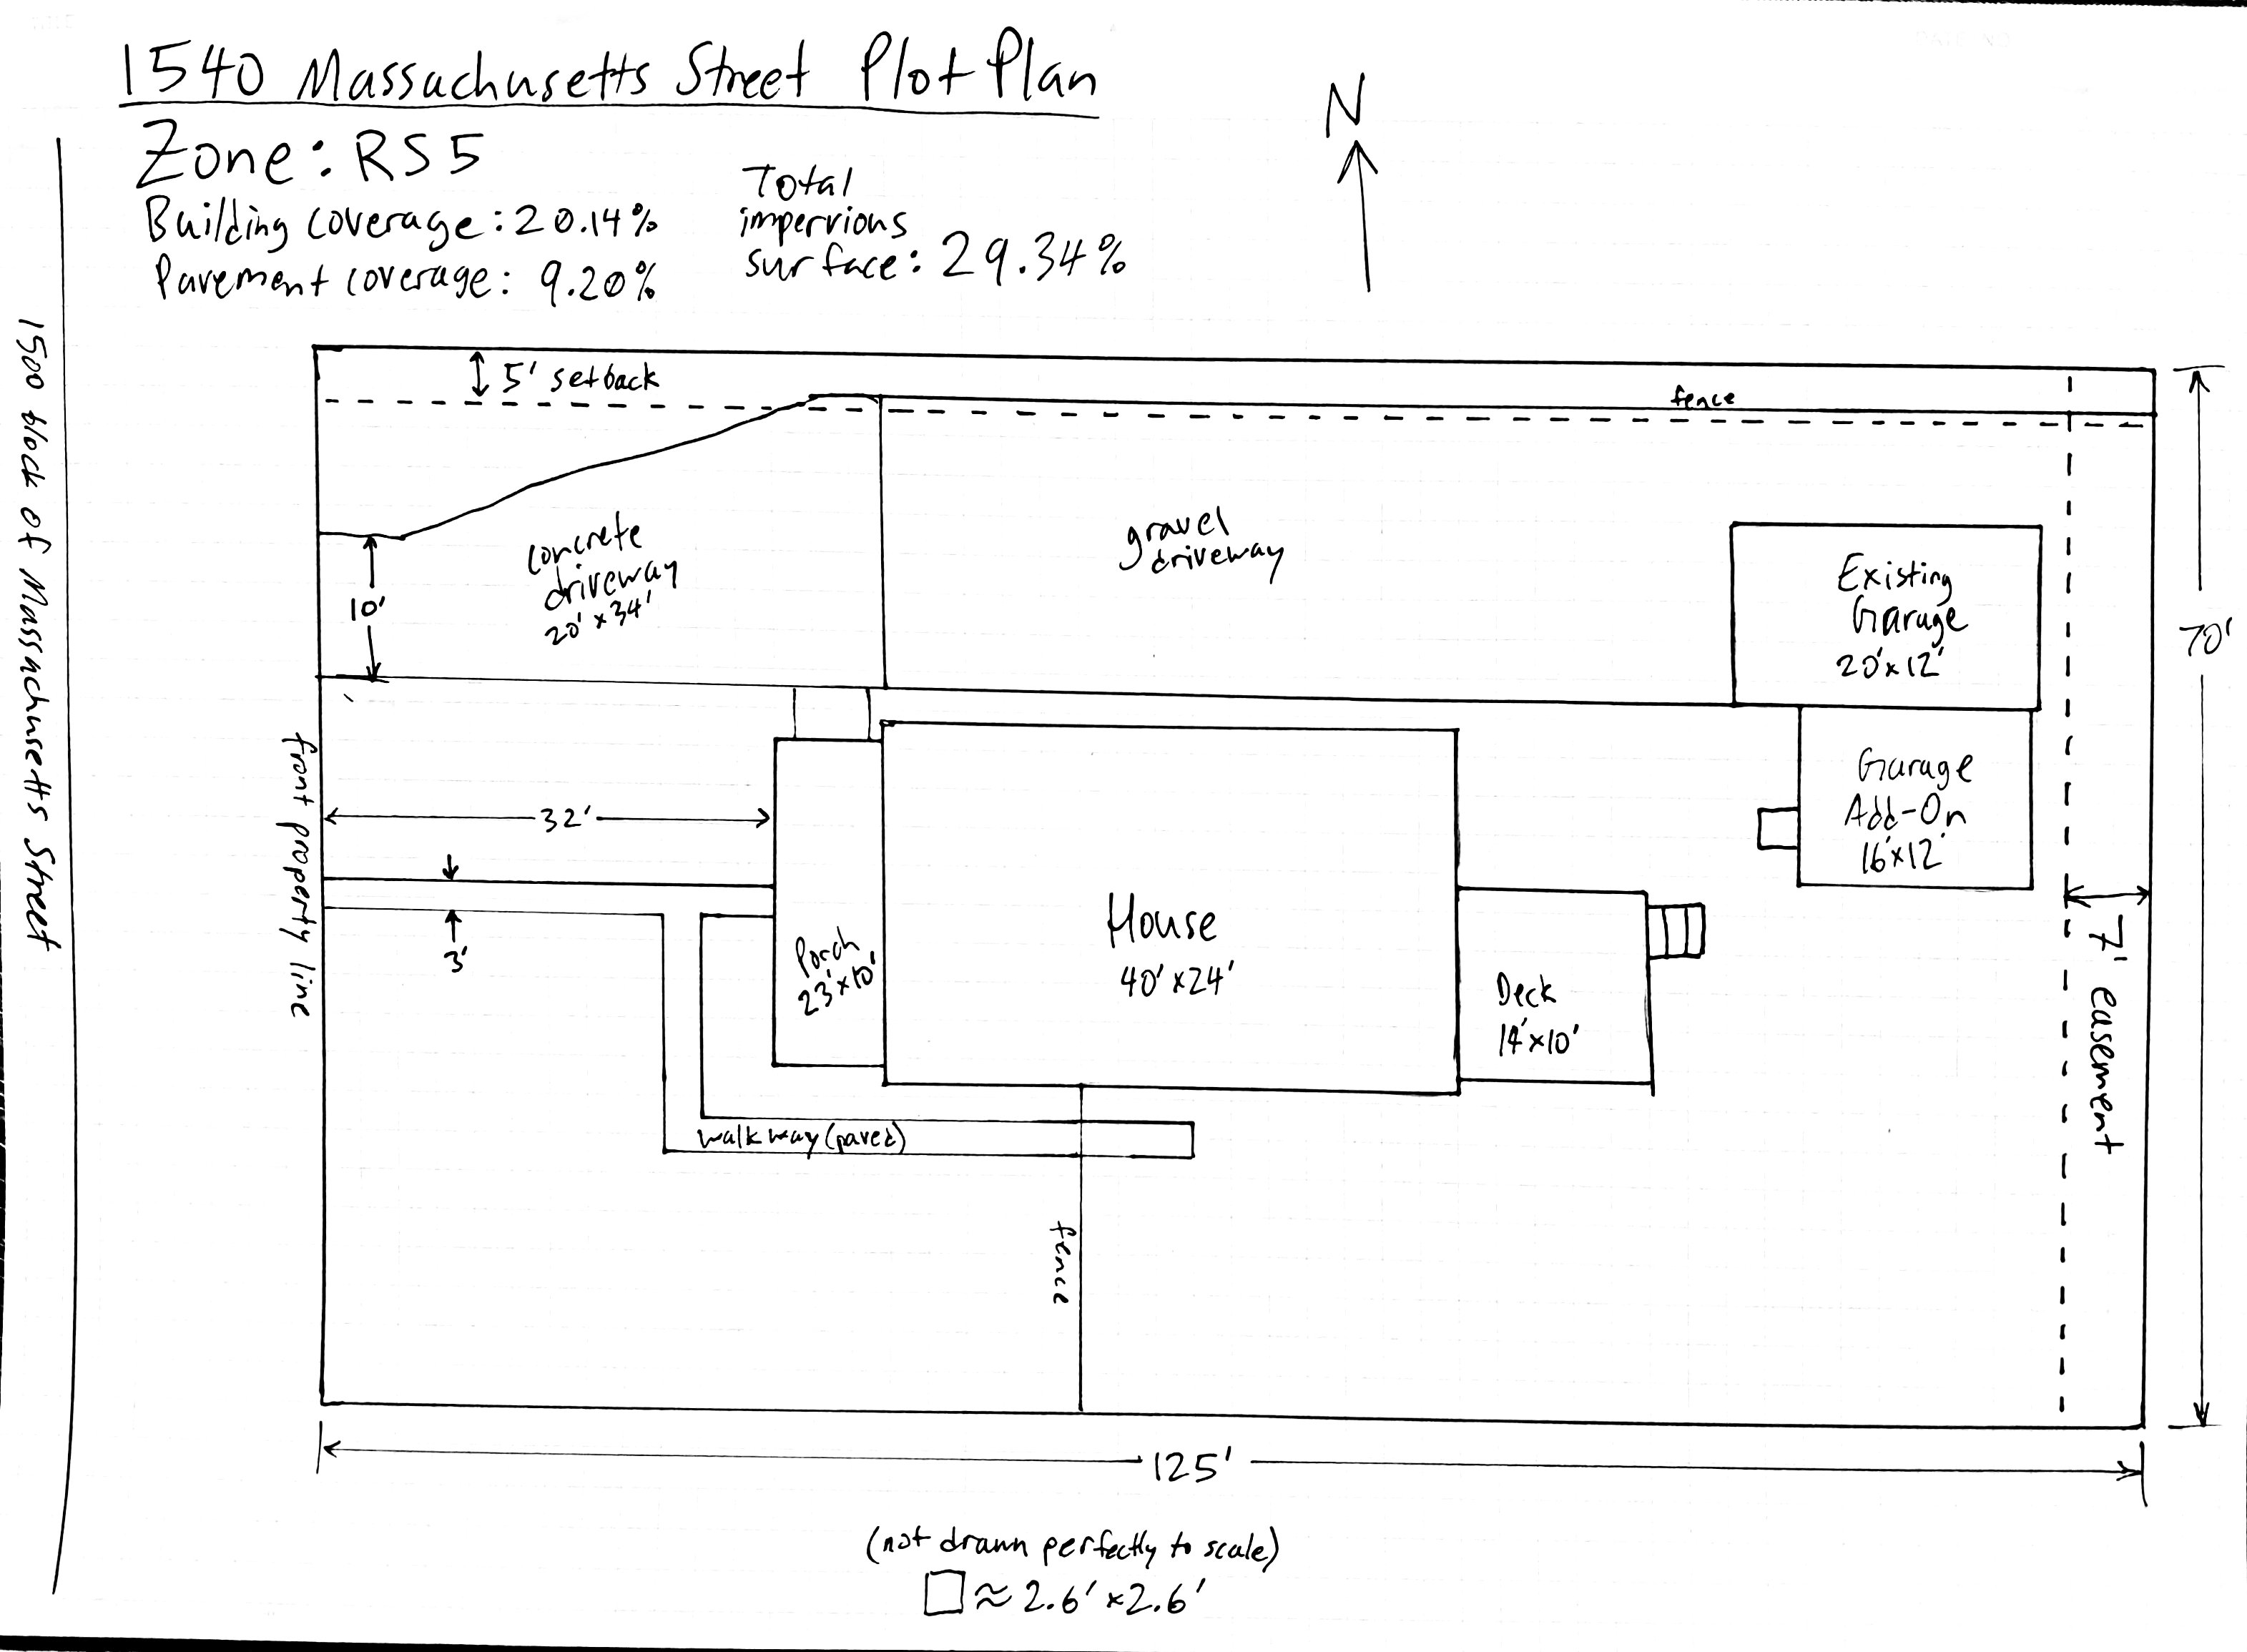 1540 Massachusetts Street Plot Plan
Zone: RS5
Building coverage: 20.14%
Pavement coverage: 9.20%
Total
impervious
surface: 29.34%
N
1500 block of Massachusetts Street
5' setback
fence
concrete
driveway
20' x 34'
10'
gravel
driveway
Existing
Garage
20'x12'
70'
Garage
Add-On
16'x12'
front property line
32'
3'
Porch
23'x10'
House
40'x24'
Deck
14'x10'
7' easement
walkway (paved)
fence
125'
(not drawn perfectly to scale)
□ ≈ 2.6' x 2.6'